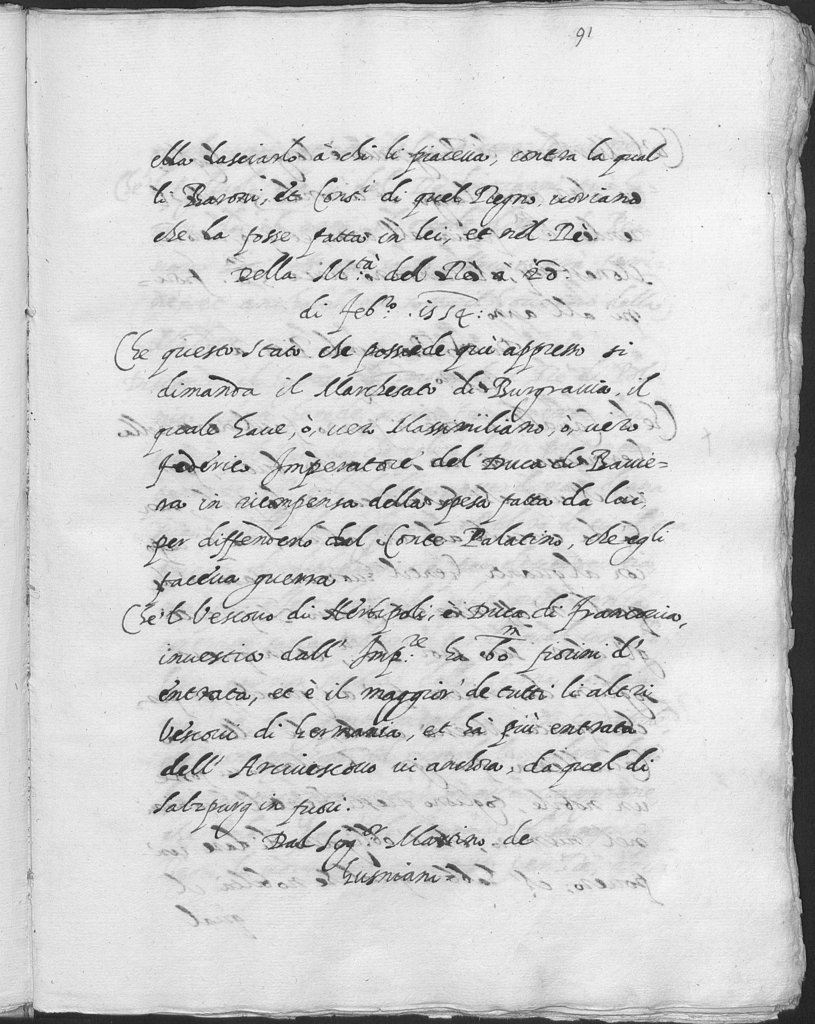 91
ella lasciarlo à chi li piaceua, contra la qual
li Baroni, et Cons.ri di quel Regno, uoriano
che la fosse fatta in lei, et nel Rè
Della M.tà del Rè a 20:
di Feb.ro 1554:
Che questo stato che possede qui appresso si
dimanda il Marchesato di Burgrauia, il
quale haue, ò, uero Massimiliano, ò, uero
federico Imperatore del Duca di Bauie=
ra in ricompensa della spesa fatta da lui
per diffenderlo dal Conte Palatino, che egli
faceua guerra
Che'l Vescouo di Herbipoli, è Duca di Franconia,
inuestito dall' Imp.re ha 60 m fiorini d'
entrata, et è il maggior de tutti li altri
Vescoui di Germania, et hà più entrata
dell' Arciuescouo ui anchora, da quel di
Salzpurg in fuori.
Dal Sig.or Martino de
Gusmani